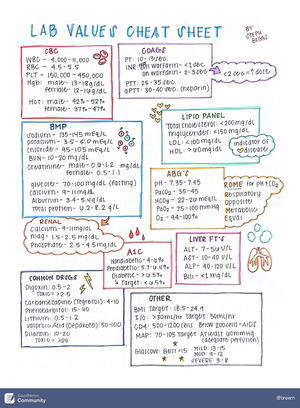 LAB VALUES CHEAT SHEET
BY: STEPH BEGGS
CBC
WBC - 4,000-11,000
RBC - 4.5-5.5
PLT - 150,000-450,000
Hgb: male - 13-18g/dL
female - 12-16g/dL
Hct: male - 42%-52%
female - 37%-47%
COAGs
PT: 10-13 sec.
INR: on warfarin - <1 sec
on warfarin - 2-3 sec
PTT: 25-35 sec.
aPTT: 30-40 sec. (heparin)
LIPID PANEL
Total cholesterol: <200mg/dL
Triglyceride: <150mg/dL
LDL: <100mg/dL
HDL: >60mg/dL
indicator of
BMP
Sodium - 135-145 mEq/L
Potassium - 3.5-5.0 mEq/L
Chloride - 95-105 mEq/L
BUN - 10-20 mg/dL
Creatinine - male: 0.6-1.2 mg/dL
female: 0.5-1.1
glucose - 70-100mg/dL (fasting)
Calcium - 9-11mg/dL
Albumin - 3.4-5.4g/dL
Total protein - 6.2-8.2 g/L
ABG's
pH - 7.35-7.45
PaCO2 - 35-45
HCO3 - 22-26 mEq/L
PaO2 - 75-100 mmHg
O2 - 94-100%
ROME for pH & CO2
Respiratory
Opposite
Metabolic
Equal
RENAL
Calcium - 9-11mg/dL
mag - 1.5-2.5 mg/dL
Phosphate - 2.5-4.5mg/dL
A1C
Nondiabetic - 4-6%
Prediabetic - 5.7-6.4%
Diabetic - >6.5%
↳ Target: <6.5%
LIVER FT'S
ALT - 7-56 U/L
AST - 10-40 U/L
ALP - 40-120 U/L
Bili - <1 mg/dL
COMMON DRUGS
Digoxin: 0.5-2
TOXIC = >2.5
Carbamazepine (Tegretol): 4-10
Phenobarbital: 15-40
Lithium: 0.5-1.2
Valproic Acid (Depakote): 50-100
Dilantin: 10-20
TOXIC = >20
OTHER
BMI Target: 18.5-24.9
I/O: >30mL/hr Target: 50mL/hr
CD4: 500-1200 cells Below 200 cells = AIDS
MAP: 70-105 Target: At least 60mmHg
(adequate perfusion)
Glasgow: Best = 15 MILD: 13-15
MOD: 9-12
SEVERE: 3-8
Community